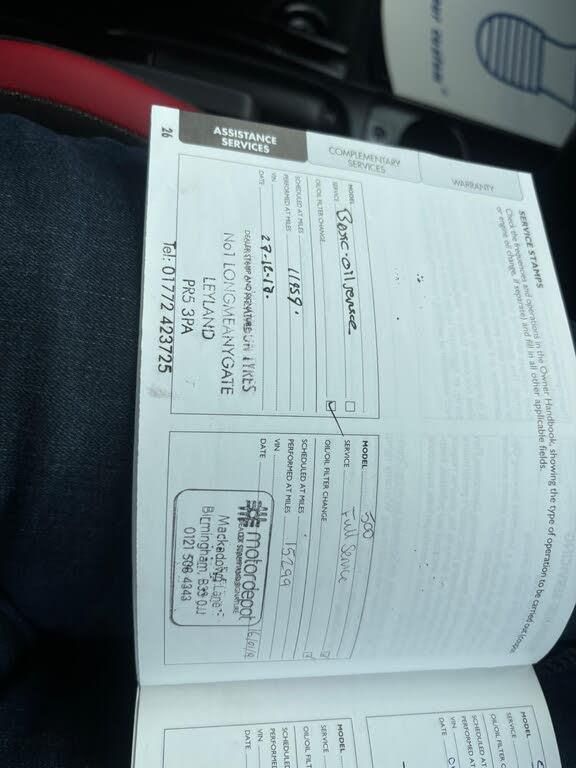 ASSISTANCE
SERVICES
COMPLEMENTARY
SERVICES
WARRANTY
SERVICE STAMPS
Check the frequencies and operations in the Owner Handbook, showing the type of operation to be carried out (coupon
or engine oil change, if separate) and fill in all other applicable fields.
MODEL
SERVICE Basic oil service
OIL/OIL FILTER CHANGE
SCHEDULED AT MILES
PERFORMED AT MILES 11959.
VIN
DATE 27-12-17.
DEALER STAMP AND SIGNATURE
TYRES
No1 LONGMEANYGATE
LEYLAND
PR5 3PA
Tel: 01772 423725
MODEL 500
SERVICE Full Service
OIL/OIL FILTER CHANGE
SCHEDULED AT MILES
PERFORMED AT MILES 15299
VIN
DATE
motordepot
Mackadown Lane
Birmingham, B33 0JJ
0121 506 4343
26
MODEL
SERVICE
OIL/OIL FILT
SCHEDULE
PERFORME
VIN
DATE
MODEL
SERVICE
OIL/OIL FILTER C
SCHEDULED AT
PERFORMED AT M
VIN
DATE